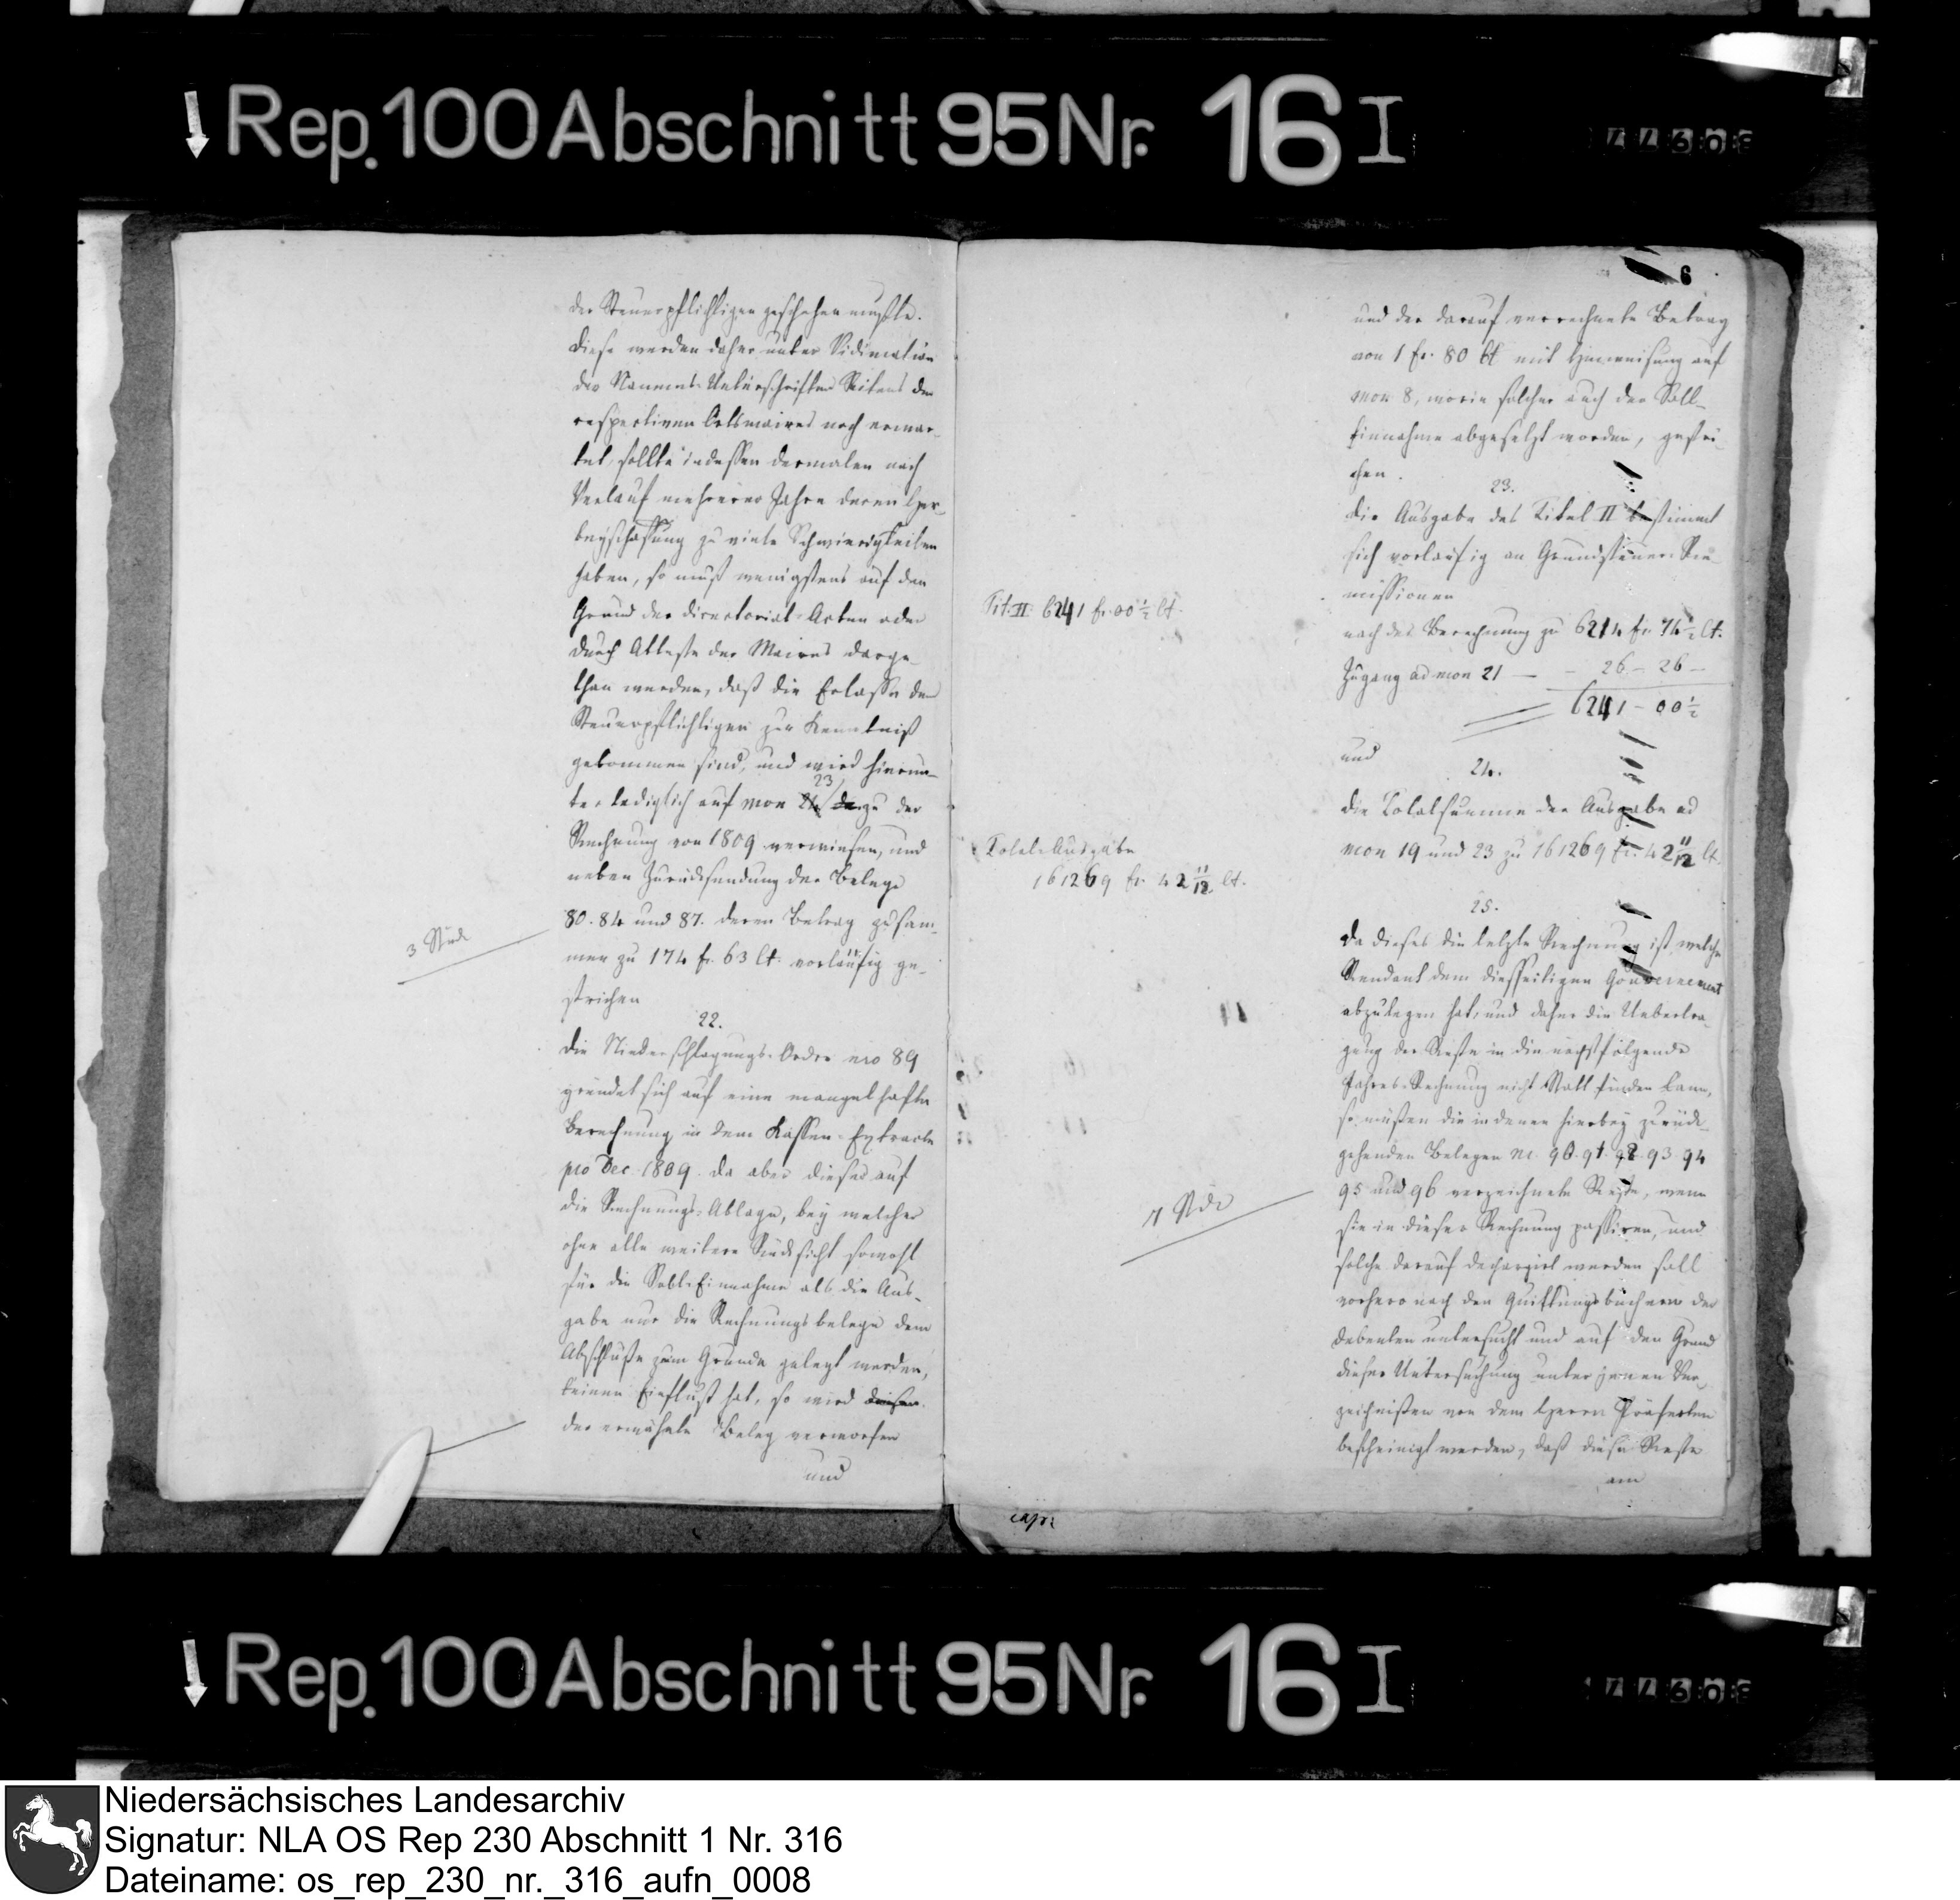 Rep. 100 Abschnitt 95 Nr. 16 I
der Steuerpflichtigen geschehen mußte.
Diese werden daher unter Vidimation
der Namens-Unterschriften Seitens der
respectiven Ortsmaires noch erwar-
tet, sollte indessen dermalen nach
Verlauf mehrerer Jahre deren Her-
beyschaffung zu viele Schwierigkeiten
haben, so muß wenigstens auf den
Grund der Directorial-Acten oder
durch Atteste der Maires darge-
than werden, daß die Erlasse den
Steuerpflichtigen zur Kenntniß
gekommen sind, und wird hierun-
23
ter lediglich auf mon zu der
Rechnung von 1809 verwiesen, und
neben Zurücksendung der Belege
80. 84 und 87. deren Betrag zusam-
men zu 174 fr. 63 Ct. vorläufig ge-
strichen
3 Stück
22.
Die Niederschlagungs-Ordre nro 89
gründet sich auf eine mangelhafte
Berechnung in dem Kassen-Extracte
pro Dec. 1809. da aber dieses auf
die Rechnungs-Ablage, bey welcher
ohne alle weitere Rücksicht sowohl
für die Soll-Einnahme als die Aus-
gabe nur die Rechnungsbelege dem
Abschluße zum Grunde gelegt werden,
keinen Einfluß hat, so wird
der erwähnte Beleg verworfen
und
6
und der darauf verrechnete Betrag
von 1 fr. 80 Ct mit Hinweisung auf
mon 8, worin solcher auch der Soll-
Einnahme abgesetzt worden, gestri-
chen.
23.
Die Ausgabe des Titel II bestimmt
sich vorläufig an Grundsteuer-Re-
missionen
Tit. II 6241 fr. 00 ½ Ct.
nach der Berechnung zu 6214 fr. 74 ½ Ct.
Zugang ad mon 21 — – 26 – 26 –
6241 – 00 ½
und
24.
die Totalsumme der Ausgabe ad
mon 19 und 23 zu 161269 fr. 42 11/12 Ct.
Total-Ausgabe
161269 fr. 42 11/12 Ct.
25.
Da dieses die letzte Rechnung ist welche
Rendant dem diesseitigen Gouvernement
abzulegen hat, und daher die Uebertra-
gung der Reste in die nächstfolgende
Jahres-Rechnung nicht Statt finden kann,
so müßen die in denen hierbey zurück-
gehenden Belegen nr. 90. 91. 92. 93. 94
95 und 96 verzeichnete Reste, wenn
sie in dieser Rechnung passiren, und
solche darauf dechargirt werden soll
vorhero nach den Quittungsbüchern der
Debenten untersucht und auf den Grund
dieser Untersuchung unter jenen Ver-
zeichnißen von dem Herrn Präfecten
bescheinigt werden, daß diese Reste
am
7 Stück
Rep. 100 Abschnitt 95 Nr. 16 I
Niedersächsisches Landesarchiv
Signatur: NLA OS Rep 230 Abschnitt 1 Nr. 316
Dateiname: os_rep_230_nr._316_aufn_0008